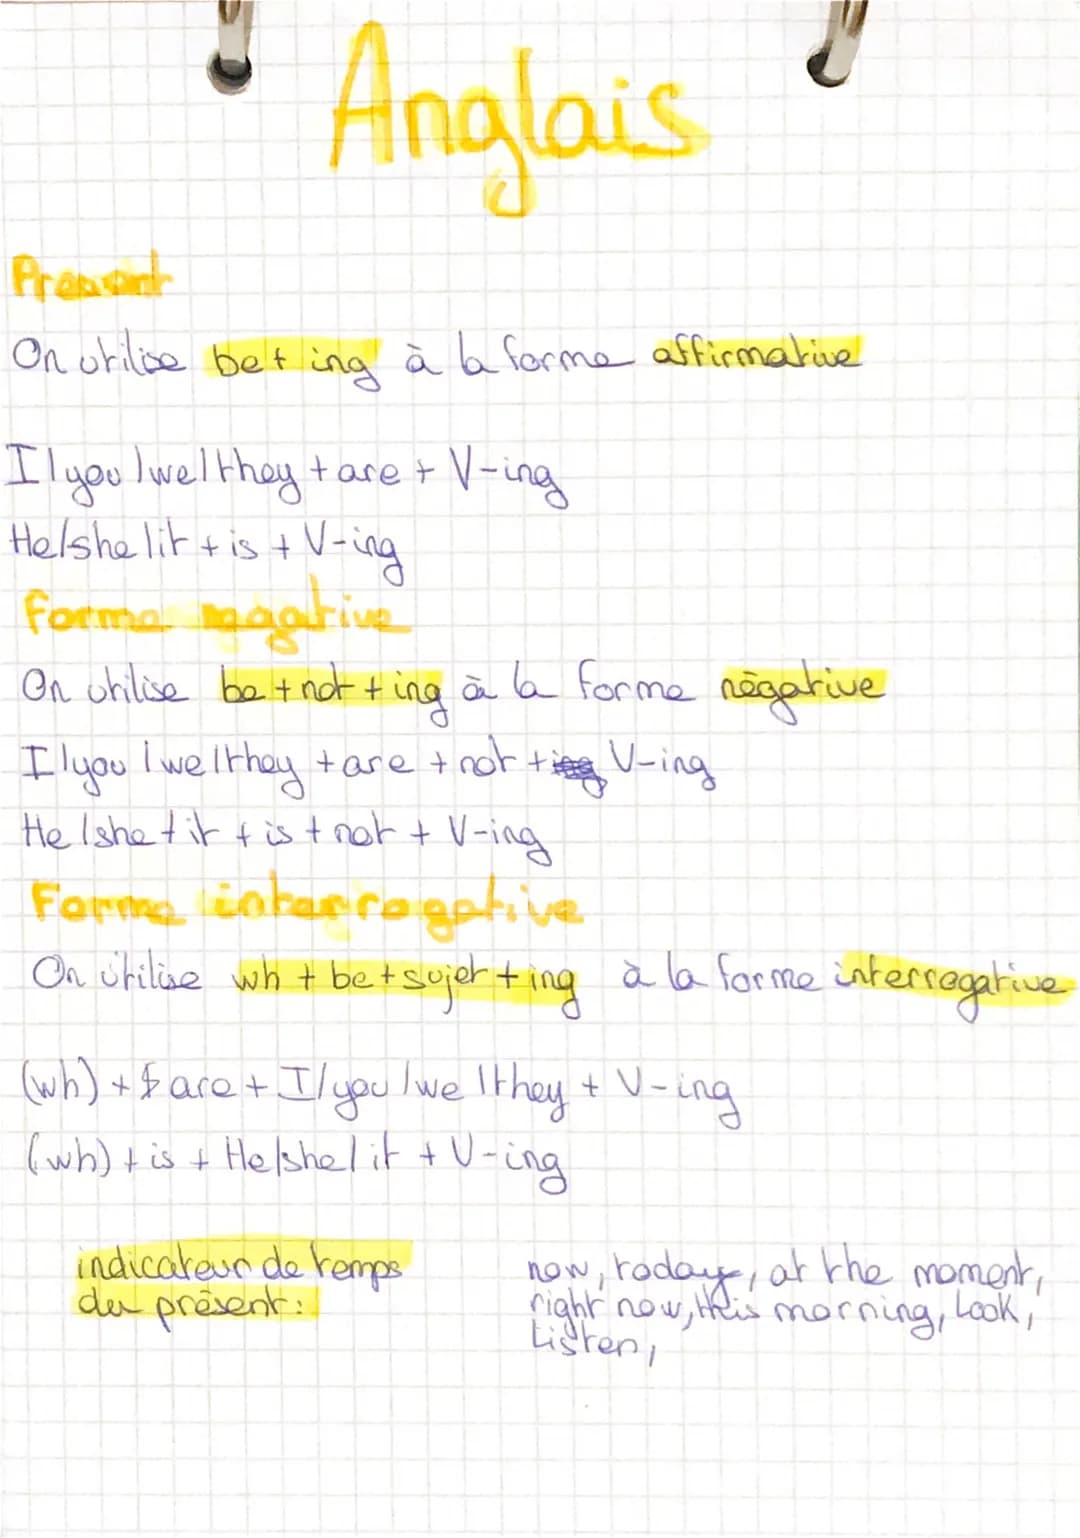 Anglais
Present
On utilise be + ing à la forme affirmative
I/you/we/they + are + V-ing
He/she/it + is + V-ing
Forme négative
On utilise be + not + ing à la forme négative
I/you/we/they + are + not + V-ing
He/she + it + is + not + V-ing
Forme interrogative
On utilise wh + be + sujet + ing à la forme interrogative
(wh) + are + I/you/we/they + V-ing
(wh) + is + He/she/it + V-ing
indicateur de temps
du présent :
now, today, at the moment,
right now, this morning, Look,
Listen,